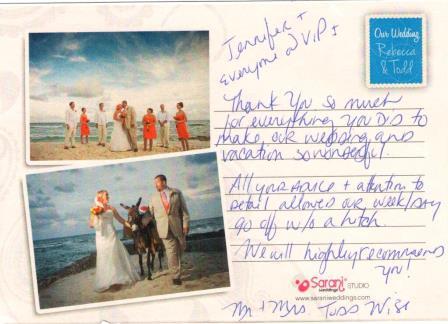 Jennifer +
Everyone @ VIP,
Our Wedding
Rebecca
& Todd
Thank You so much
for everything you DID to
make our wedding and
vacation so wonderful.
All your ADVICE + attention to
detail allowed our week/DAY
go off w/o a hitch.
We will highly recommend
you!
Sarani
weddings
STUDIO
www.saraniweddings.com
Mr + Mrs Todd Wise